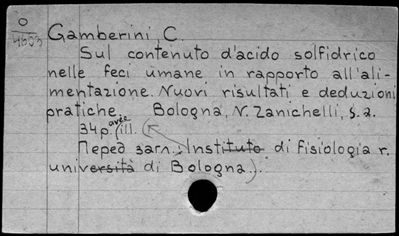 O
4603
Gamberini, C.
Sul contenuto d'acido solfidrico
nelle feci umane in rapporto all'ali-
mentazione. Nuovi risultati e deduzioni
pratiche Bologna, N. Zanichelli, s.a.
34p avec ill. (
Перед загл.: Instituto di Fisiologia r.
università di Bologna.).